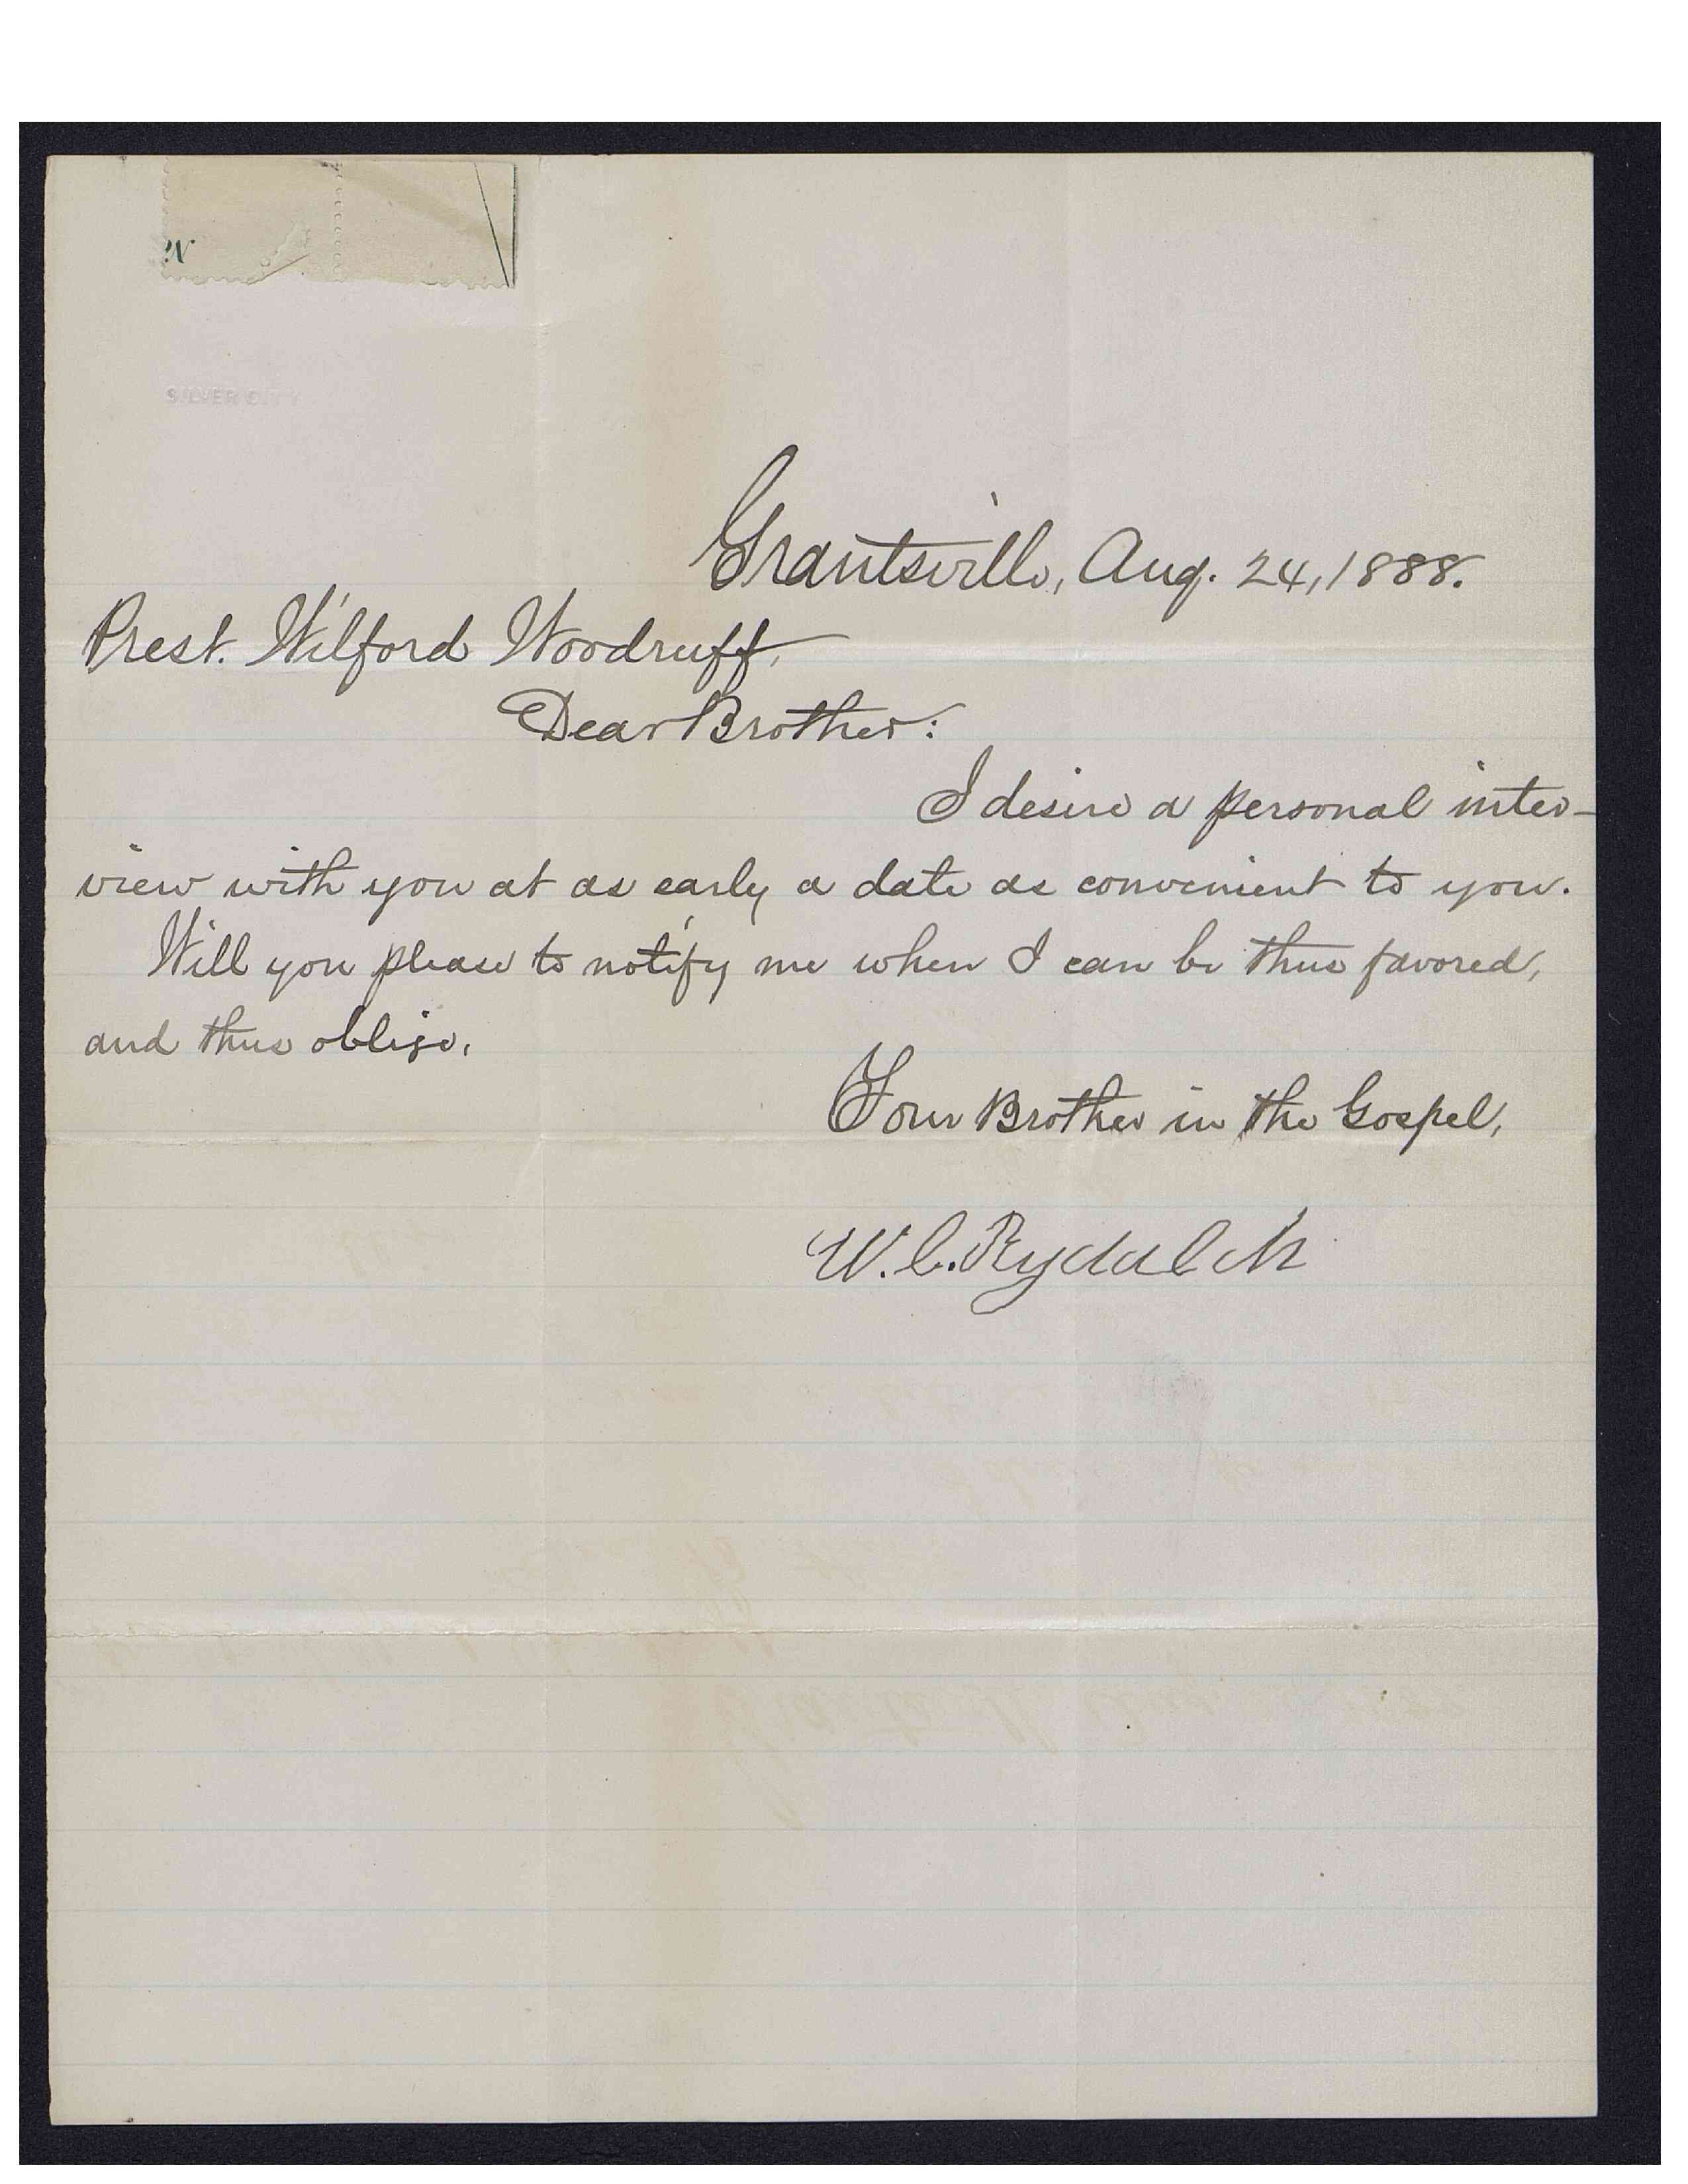 SILVER CITY
Grantsville, Aug. 24, 1888.
Prest. Wilford Woodruff,
Dear Brother:
I desire a personal inter-
view with you at as early a date as convenient to you.
Will you please to notify me when I can be thus favored,
and thus oblige.
Your Brother in the Gospel,
W. C. Rydalch